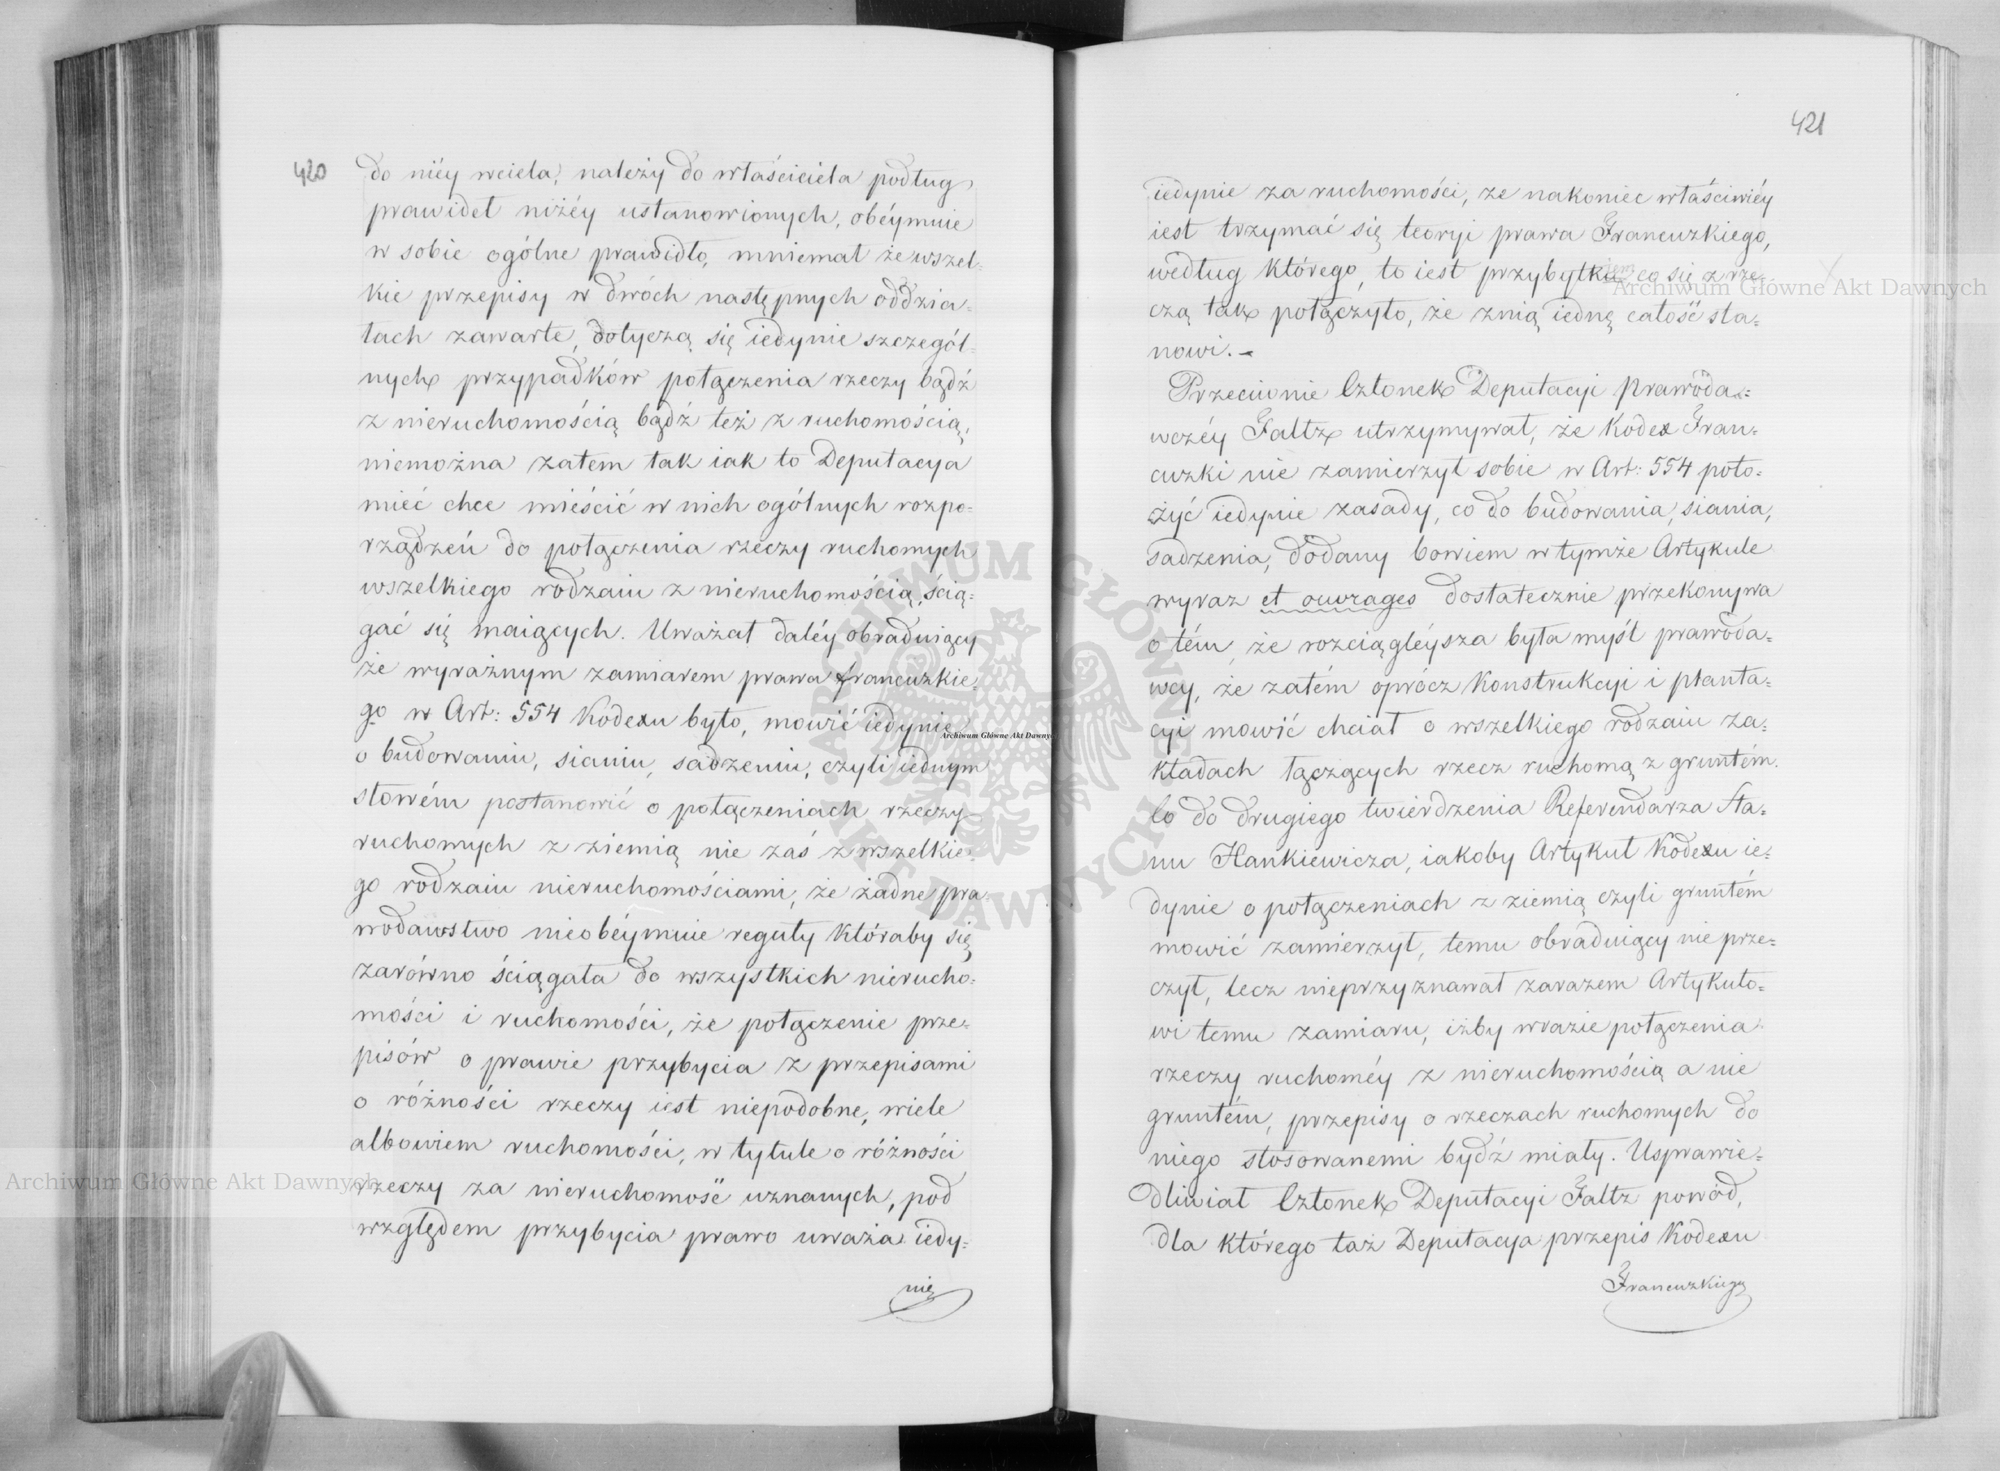 420
do niéy wciela, należy do właściciela podług
prawideł niżéy ustanowionych, obéymuie
w sobie ogólne prawidło, mniemał że wszel-
kie przepisy w dwóch następnych oddzia-
łach zawarte, dotyczą się iedynie szczegól-
nych przypadków połączenia rzeczy bądź
z nieruchomością bądź też z ruchomością,
niemożna zatem tak iak to Deputacya
mieć chce mieścić w nich ogólnych rozpo-
rządzeń do połączenia rzeczy ruchomych
wszelkiego rodzaiu z nieruchomością, ścią-
gać się maiących. Uważał daléy obraduiący
że wyraźnym zamiarem prawa francuzkie-
go w Art: 554 Kodexu było, mowić iedynie
o budowaniu, sianiu, sadzeniu, czyli iednym
słowém postanowić o połączeniach rzeczy
ruchomych z ziemią nie zaś z wszelkie-
go rodzaiu nieruchomościami, że żadne pra
wodawstwo nieobéymuie reguły któraby się
zarówno ściągała do wszystkich nierucho-
mości i ruchomości, że połączenie prze-
pisów o prawie przybycia z przepisami
o różności rzeczy iest niepodobne, wiele
albowiem ruchomości, w tytule o różności
rzeczy za nieruchomość uznanych, pod
względem przybycia prawo uważa iedy-
nie
421
iedynie za ruchomości, że nakoniec właściwiéy
iest trzymać się teoryi prawa Francuzkiego,
według którego, to iest przybytkiem co się z rze-
czą tak połączyło, że z nią iednę całość sta-
nowi. -
Przeciwnie Członek Deputacyi prawoda-
wczéy Faltz utrzymywał, że Kodex Fran-
cuzki nie zamierzył sobie w Art: 554 poło-
żyć iedynie zasady, co do budowania, siania,
sadzenia, dodany bowiem w tymże Artykule
wyraz et ouvrages dostatecznie przekonywa
o tém, że rozciągléysza była myśl prawoda-
wcy, że zatém oprócz Konstrukcyi i planta-
cyi mowić chciał o wszelkiego rodzaiu za-
kładach łączących rzecz ruchomą z gruntém.
Co do drugiego twierdzenia Referendarza Sta-
nu Hankiewicza, iakoby Artykuł Kodexu ie-
dynie o połączeniach z ziemią czyli gruntém
mowić zamierzył, temu obraduiący nie prze-
czył, lecz nieprzyznawał zarazem Artykuło-
wi temu zamiaru, iżby w razie połączenia
rzeczy ruchoméy z nieruchomością a nie
gruntém, przepisy o rzeczach ruchomych do
niego stosowanemi bydź miały. Usprawie-
dliwiał Członek Deputacyi Faltz powód,
dla którego taż Deputacya przepis Kodexu
Francuzkiego
Archiwum Główne Akt Dawnych
Archiwum Główne Akt Dawnych
Archiwum Główne Akt Dawnyc
ARCHIWUM GŁÓWNE AKT DAWNYCH